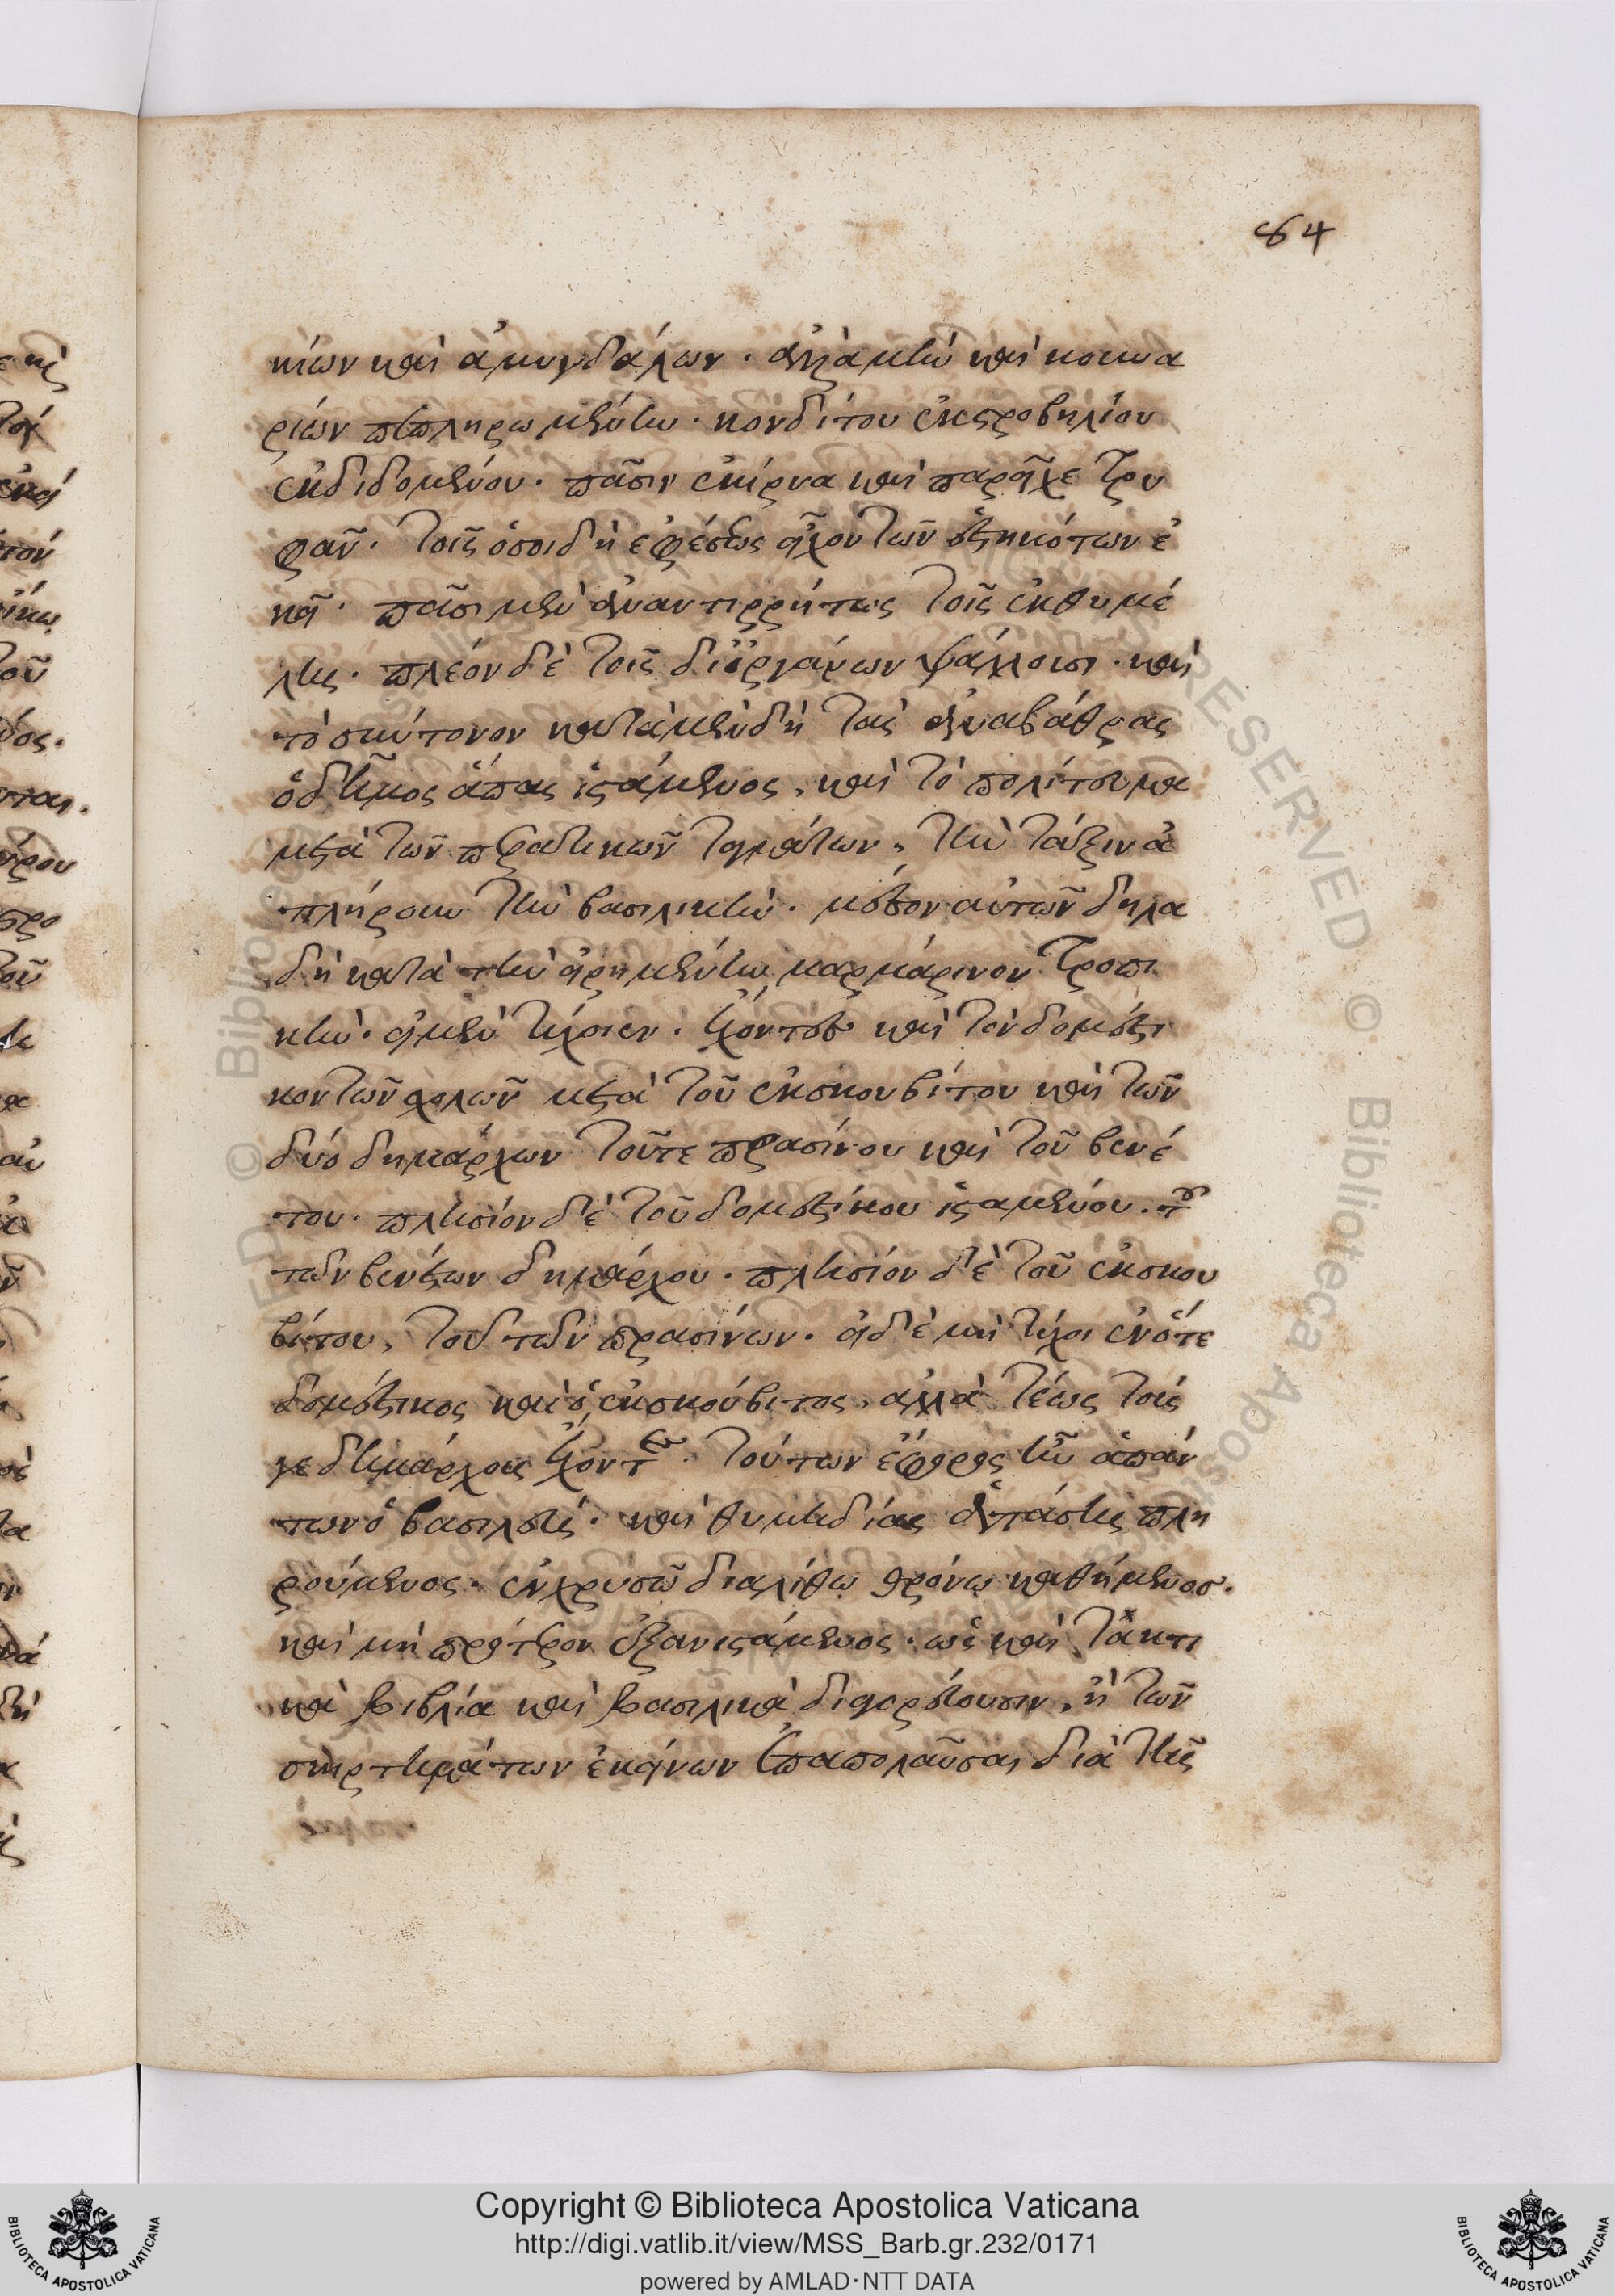 84
κίων καὶ ἀμυγδάλων· ἀλλὰ μὴν καὶ κοκωνα
ρίων πεπληρωμένην· κονδίτου ἐκ στροβηλίου
ἐκδιδομένου· πᾶσιν ἐκίρνα καὶ παρεῖχε τρυ
φᾶν· τοῖς ὁσοιδὴ ἐφέσεως εἶχον τῶν ἑστηκότων ἐ
κεῖ· πᾶσι μὲν ἀναντιρρήτως τοῖς ἐκ θυμέ
λης· πλέον δὲ τοῖς δι' ὀργάνων ψάλλουσι· καὶ
τὸ σύντονον κατὰ μὲν δὴ τὰς ἀναβάθρας
ὁ δῆμος ἅπας ἱστάμενος, καὶ τὸ πολίτευμα
μετὰ τῶν πρατικῶν ταγμάτων, τὴν τάξιν ἀ
πλήρουν τὴν βασιλικήν· μέσον αὐτῶν δηλα
δὴ κατὰ τὴν εἰρημένην μαρμάρινον τροπι
κήν· εἰ μὲν τύχοιεν· ἔχοντες καὶ τὸν δομέστι
κον τῶν σχολῶν μετὰ τοῦ ἐκσκουβίτου καὶ τῶν
δύο δημάρχων τοῦτε πρασίνου καὶ τοῦ βενέ
του· πλησίον δὲ τοῦ δομεστίκου ἱσταμένου· τοῦ
τῶν βενέτων δημάρχου· πλησίον δὲ τοῦ ἐκσκου
βίτου, τοῦ τῶν πρασίνων· εἰ δὲ μὴ τύχοι ἐν ὅτε
δομέστικος καὶ ὁ ἐκσκούβιτος, ἀλλὰ τέως τοῖς
γε δημάρχοις ἔχοντες· τούτων ἔφορος ἦν ἁπάν
των ὁ βασιλεύς· καὶ θυμηδίας ἁπάσης πλη
ρούμενος· ἐν χρυσῷ διαλίθῳ θρόνῳ καθήμενος·
καὶ μὴ πρότερον ἐξανιστάμενος· ὡς καὶ τακτι
κὰ βιβλία καὶ βασιλικὰ διαγορεύουσιν, ἢ τῶν
σκιρτημάτων ἐκείνων ἐπαπολαῦσαι διὰ τῆς